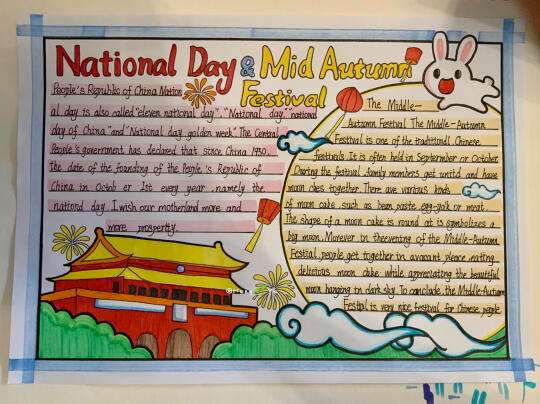 National Day & Mid Autumn
Festival
People's Republic of China Nation
al day is also called "eleven national day", "National day", "national
day of China" and "National day golden week" The Central
People's government has declared that since China 1950.
The date of the founding of the People's Republic of
China in Octob er 1st every year, namely the
nationd day. I wish our motherland more and
more prosperity.
The Middle-
Autumn Festival The Middle-Autumn
Festival is one of the traditional Chinese
festivals. It is often held in September or October.
During the festival, family members get unitd and have
moon cakes together. There are various kinds
of moon cake, such as bean paste, egg-yolk or meat.
The shape of a moon cake is round at is symbolizes a
big moon. Morever, in theevening of the Middle-Autumn
Festival, people get together in a vacant place, eating
delicious moon cake while appreciating the beautiful
moon hanging in dark sky. To conclude, the Middle-Autumn
Festival is very nice festival for Chinese people